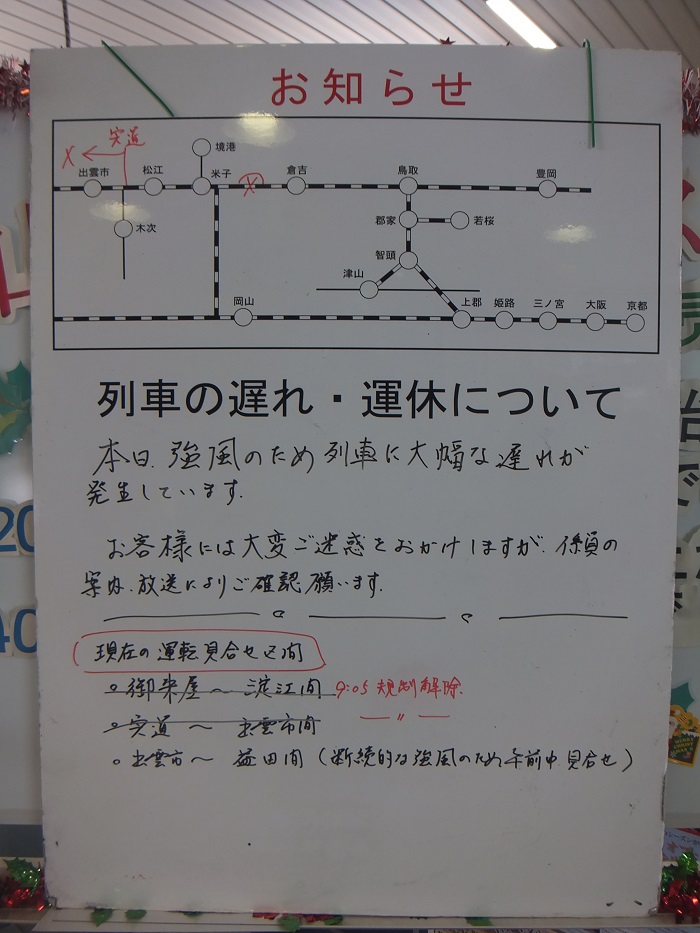 お知らせ
宍道
境港
出雲市 松江 米子 倉吉 鳥取 豊岡
郡家 若桜
木次
智頭
津山
岡山 上郡 姫路 三ノ宮 大阪 京都
列車の遅れ・運休について
本日、強風のため列車に大幅な遅れが
発生しています。
お客様には大変ご迷惑をおかけしますが、係員の
案内、放送によりご確認願います。
現在の運転見合せ区間
○ 御来屋 ～ 淀江間 9:05 規制解除
○ 宍道 ～ 出雲市間 〃
○ 出雲市 ～ 益田間 (断続的な強風のため午前中見合せ)
20
40